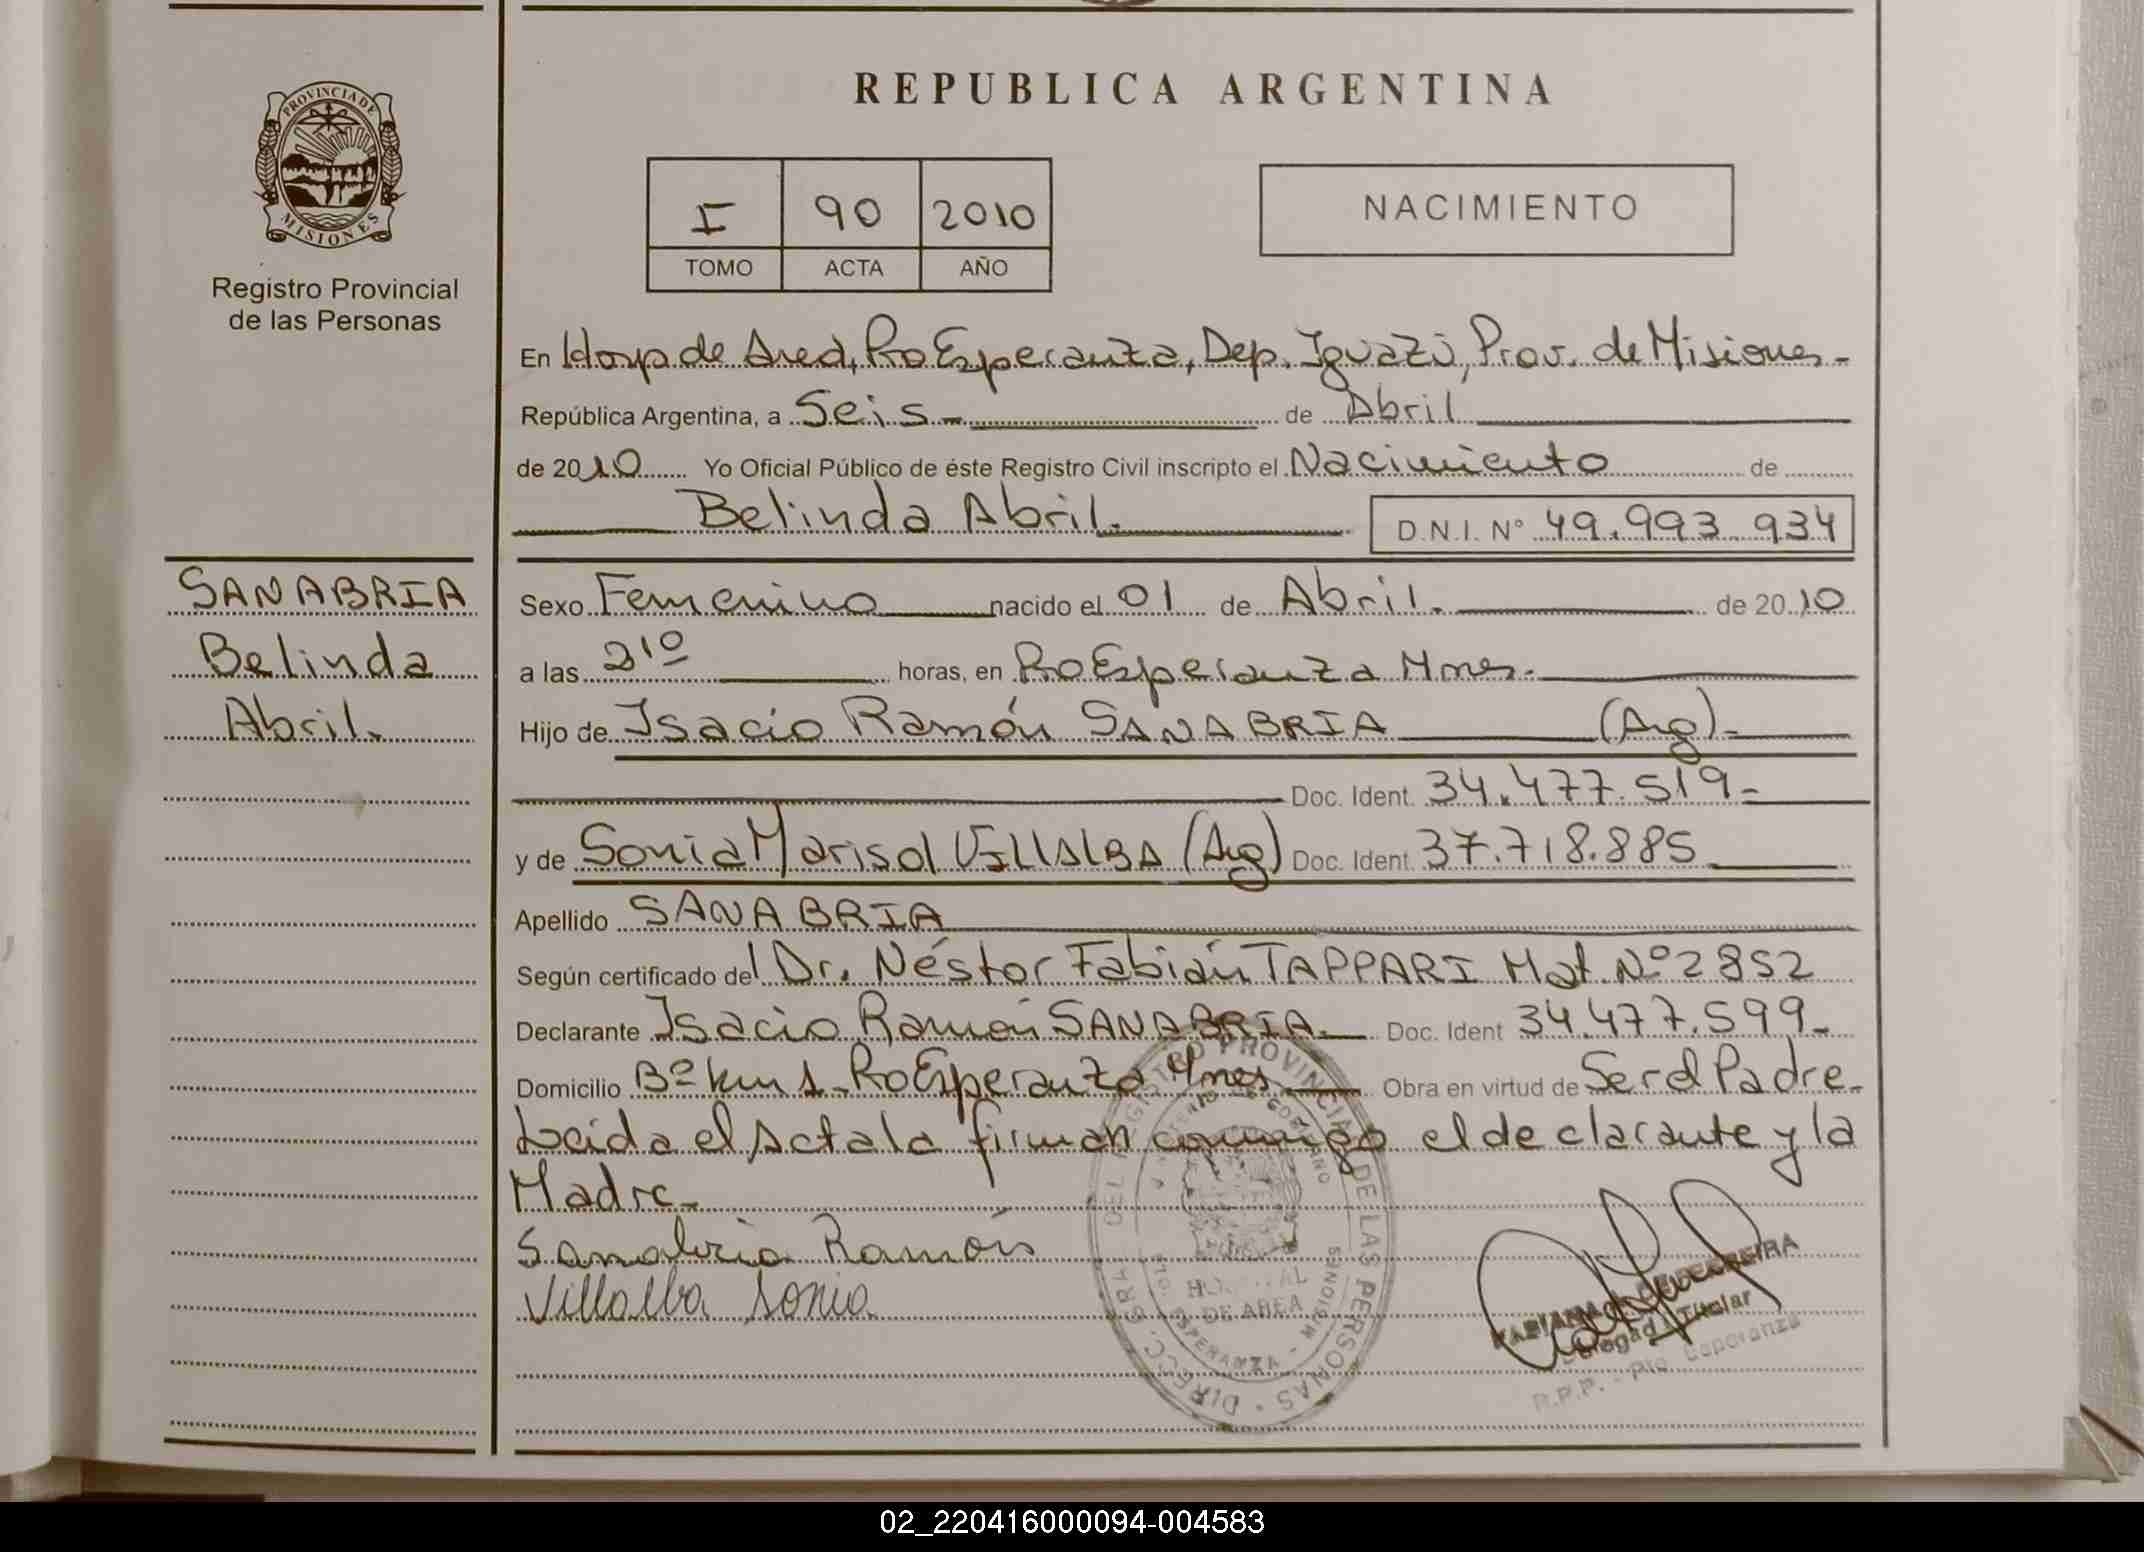 REPUBLICA ARGENTINA
PROVINCIA DE
MISIONES
Registro Provincial
de las Personas
I 90 2010
TOMO ACTA AÑO
NACIMIENTO
En Hosp de Area, Pto Esperanza, Dep. Iguazú, Prov. de Misiones-
República Argentina, a Seis- de Abril
de 2010 Yo Oficial Público de éste Registro Civil inscripto el Nacimiento de
Belinda Abril. D.N.I. N° 49.993.934
SANABRIA
Belinda
Abril.
Sexo Femenino nacido el 01 de Abril. de 2010
a las 21º horas, en Pto Esperanza Mnes.
Hijo de Isacio Ramón SANABRIA (Arg).
Doc. Ident. 34.477.519-
y de Sonia Marisol VILLALBA (Arg) Doc. Ident. 37.718.885
Apellido SANABRIA
Según certificado del Dr. Néstor Fabián TAPPARI Mat. Nº 2852
Declarante Isacio Ramón SANABRIA. Doc. Ident 34.477.599-
Domicilio Bº km 1. Pto Esperanza Mnes Obra en virtud de Ser el Padre-
Leida el Acta la firman conmigo el declarante y la
Madre-
Sanabria Ramón
Villalba Sonia
DIRECC. GRAL. DEL REGISTRO PROVINCIAL DE LAS PERSONAS
DE AREA
ESPERANZA - MISIONES
Titular
R.P.P. - Pto. Esperanza
02_220416000094-004583